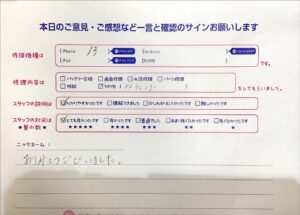 本日のご意見・ご感想など一言と確認のサインお願いします
修理機種は
iPhone 13
Android
iPad
その他
です。
修理内容は
バッテリー交換 画面修理 水没修理 パーツ修理
相談 その他
をしてもらいました。
スタッフの説明は
わかりやすかったです 理解できました 少しわかりにくかったです 難しかったです
スタッフの対応は
とても良かったです 良かったです 普通でした あまり良くなかったです 良くなかったです
★星の数★
★★★★★ ★★★★ ★★★ ★★ ★
ニックネーム:
ありがとうございました。